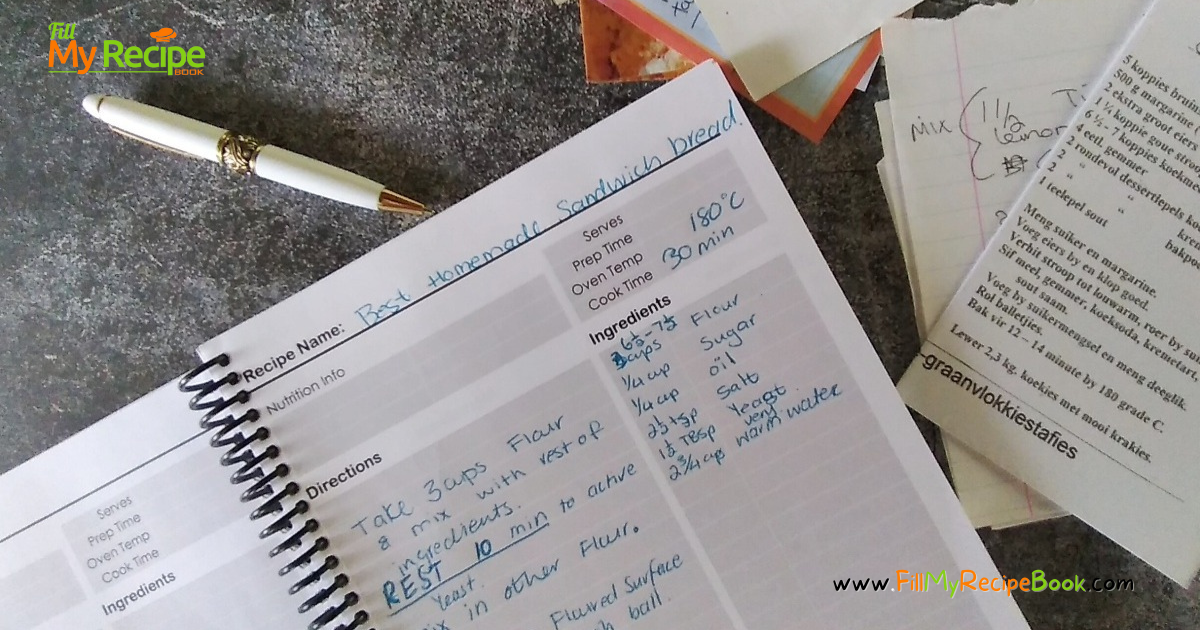 Fill
My Recipe
BOOK
Recipe Name: Best Homemade Sandwich bread.
Nutrition Info
Serves
Prep Time
Oven Temp 180°C
Cook Time 30 min
Ingredients
6½-7½
cups Flour
1/4 cup Sugar
1/4 cup oil
2½ tsp Salt
1½ TBsp Yeast
2 3/4 cup very warm water
Directions
Take 3 cups Flour
& mix with rest of
ingredients.
REST 10 min to active
Yeast.
in other Flour.
Floured Surface
ball.
Serves
Prep Time
Oven Temp
Cook Time
Ingredients
MIX
5 koppies bruin
500 g margarine
2 ekstra groot eiers
1 ¼ koppie goue stroop
6 ½ - 7 koppies koekmeel
4 eetl. gemmer
2 rondevol dessertlepels
2 "
1 teelepel sout
Meng suiker en margarine.
Voeg eiers by en klop goed.
Verhit stroop tot louwarm, roer by
Sif meel, gemmer, koeksoda, kremetart,
sout saam.
Voeg by suikermengsel en meng deeglik.
Rol balletjies.
Bak vir 12 – 14 minute by 180 grade C.
Lewer 2,3 kg. koekies met mooi krakies.
-graanvlokkiestafies
www.FillMyRecipeBook.com